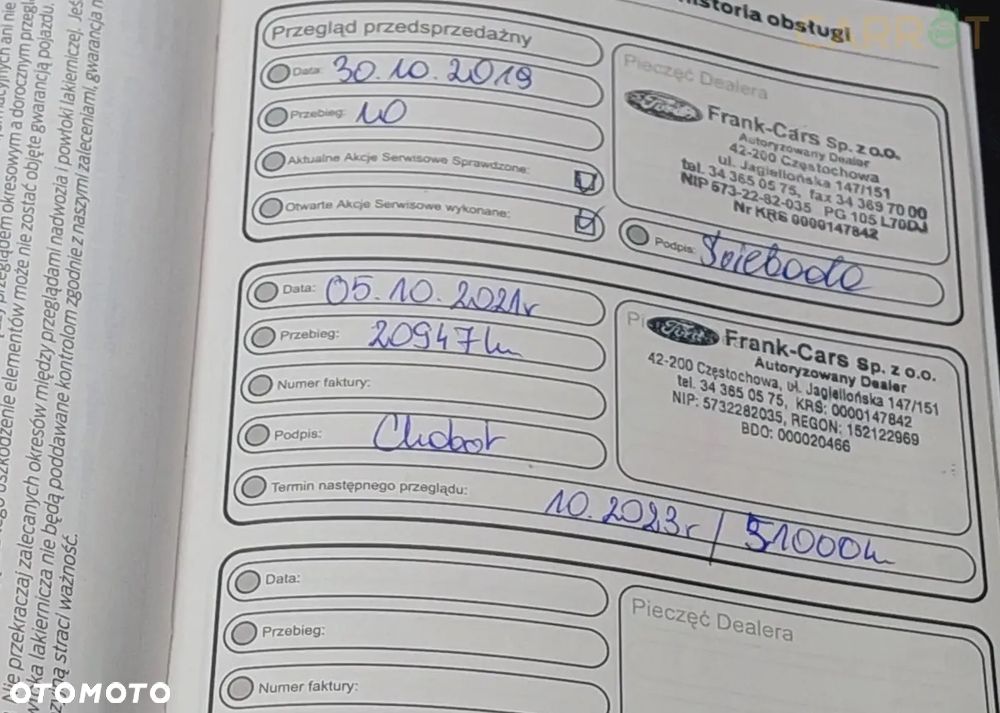 historia obsługi
CARROT
Przegląd przedsprzedażny
Data: 30.10.2019
Przebieg: 10
Aktualne Akcje Serwisowe Sprawdzone:
Otwarte Akcje Serwisowe wykonane:
Pieczęć Dealera
Ford
Frank-Cars Sp. z o.o.
Autoryzowany Dealer
42-200 Częstochowa
ul. Jagiellońska 147/151
tel. 34 365 05 75, fax 34 369 70 00
NIP 573-22-82-035 PG 105 L70DJ
Nr KRS 0000147842
Podpis: Świeboda
Data: 05.10.2021r
Przebieg: 20947km
Numer faktury:
Podpis: Chobot
Termin następnego przeglądu: 10.2023r / 51000km
Ford
Frank-Cars Sp. z o.o.
Autoryzowany Dealer
42-200 Częstochowa, ul. Jagiellońska 147/151
tel. 34 365 05 75, KRS: 0000147842
NIP: 5732282035, REGON: 152122969
BDO: 000020466
Data:
Przebieg:
Numer faktury:
Pieczęć Dealera
przeglądem okresowym a dorocznym przeglą
uszkodzenie elementów może nie zostać objęte gwarancją pojazdu.
Nie przekraczaj zalecanych okresów między przeglądami nadwozia i powłoki lakierniczej. Jeś
lakiernicza nie będą poddawane kontrolom zgodnie z naszymi zaleceniami, gwarancja n
straci ważność.
OTOMOTO